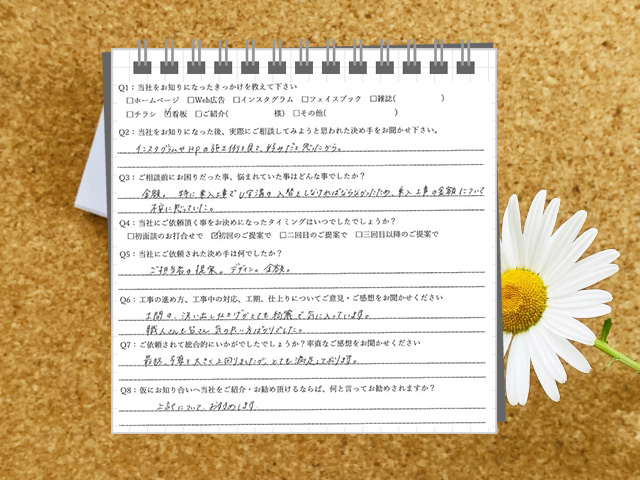 Q1：当社をお知りになったきっかけを教えて下さい
□ホームページ □Web広告 □インスタグラム □フェイスブック □雑誌( )
□チラシ ☑看板 □ご紹介( 様) □その他( )
Q2：当社をお知りになった後、実際にご相談してみようと思われた決め手をお聞かせ下さい。
インスタグラムやHPの施工例を見て、好みだと思ったから。
Q3：ご相談前にお困りだった事、悩まれていた事はどんな事でしたか？
金額。特に 工事で の 入替をしなければならなかったため、 工事の金額について
不安に思っていた。
Q4：当社にご依頼頂く事をお決めになったタイミングはいつでしたでしょうか？
□初面談のお打合せで ☑初回のご提案で □二回目のご提案で □三回目以降のご提案で
Q5：当社にご依頼された決め手は何でしたか？
ご担当者の提案。デザイン。金額。
Q6：工事の進め方、工事中の対応、工期、仕上りについてご意見・ご感想をお聞かせください
土間の、洗い出し仕上げがとても綺麗で気に入っています。
職人さんも皆さん気の良い方ばかりでした。
Q7：ご依頼されて総合的にいかがでしたでしょうか？率直なご感想をお聞かせください
最終、予算を大きく上回りましたが、とても満足しております。
Q8：仮にお知り合いへ当社をご紹介・お勧め頂けるならば、何と言ってお勧めされますか？
上記について、おすすめします